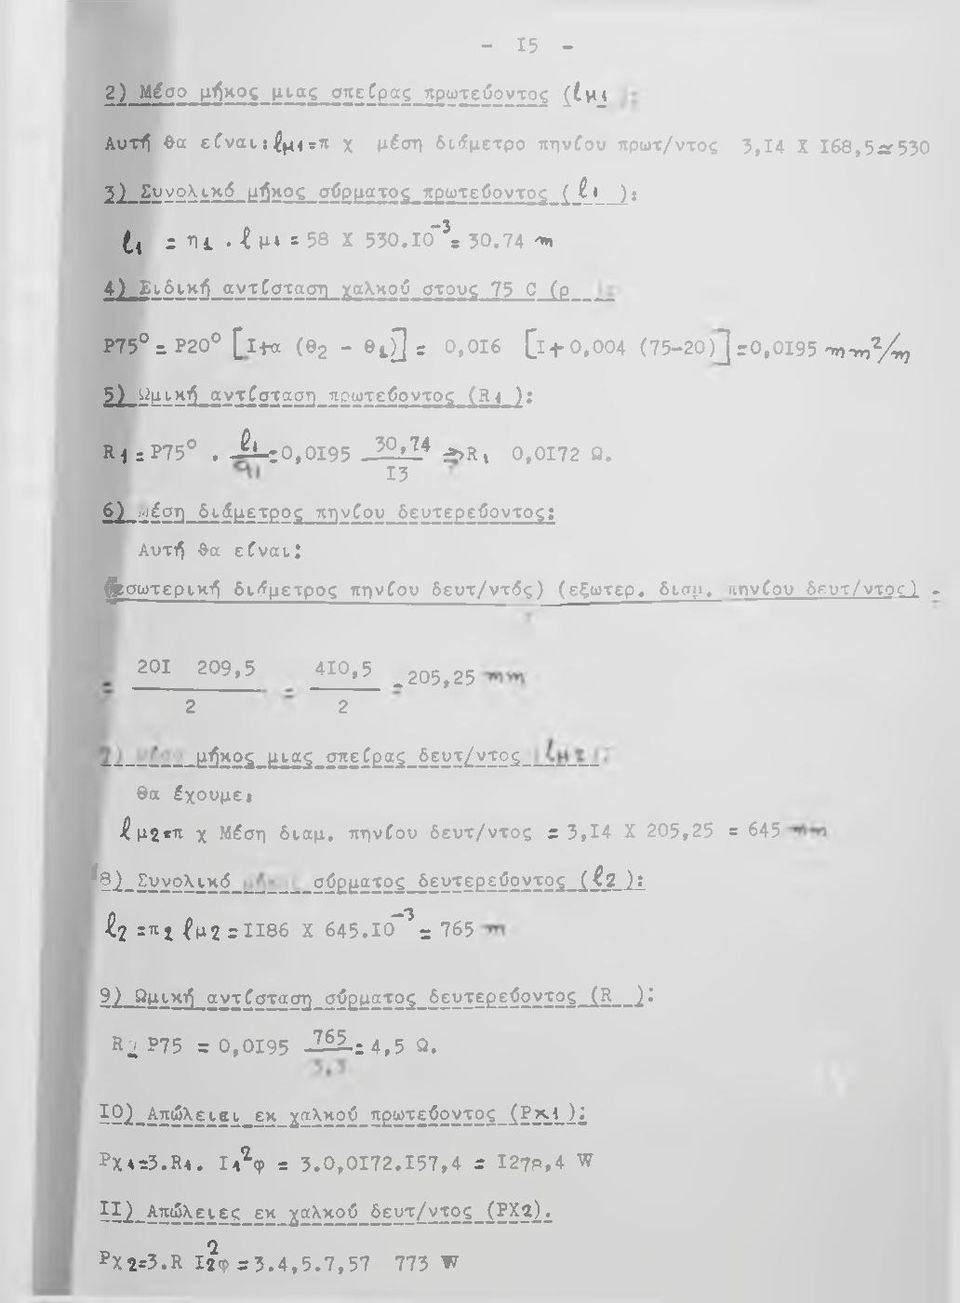 - I5 -
2) Μέσο μήκος μιας σπείρας πρωτεύοντος (ℓμ1
Αυτή θα είναι: ℓμ1=π χ μέση διάμετρο πηνίου πρωτ/ντος 3,I4 X I68,5≈530
3) Συνολικό μήκος σύρματος πρωτεύοντος (ℓ1 ):
ℓ1 = η1 . ℓμ1 = 58 X 530.I0⁻³ = 30.74 m
4) Ειδική αντίσταση χαλκού στους 75 C (ρ
P75° = P20° [I+α (θ2 - θ1)] = 0,0I6 [I+0,004 (75-20)]=0,0I95 mm²/m
5) Ωμική αντίσταση πρωτεύοντος (R1 ):
R1=P75° . ℓ1/q1 =0,0I95 30,74/I3 => R1 0,0I72 Ω.
6) Μέση διάμετρος πηνίου δευτερεύοντος:
Αυτή θα είναι:
(εσωτερική διάμετρος πηνίου δευτ/ντός) (εξωτερ. διαμ. πηνίου δευτ/ντος) =
= 20I 209,5 / 2 = 4I0,5 / 2 = 205,25 mm
7) μήκος μιας σπείρας δευτ/ντος ℓμ2
θα έχουμε:
ℓμ2=π χ Μέση διαμ. πηνίου δευτ/ντος = 3,I4 X 205,25 = 645 mm
8) Συνολικό σύρματος δευτερεύοντος (ℓ2 ):
ℓ2 =π2 ℓμ2 = II86 X 645.I0⁻³ = 765 m
9) Ωμική αντίσταση σύρματος δευτερεύοντος (R ):
R2 P75 = 0,0I95 765/3,3 = 4,5 Ω.
I0) Απώλειαι εκ χαλκού πρωτεύοντος (Pχ1 ):
Pχ1=3.R1. I1²φ = 3.0,0I72.I57,4 = I278,4 W
II) Απώλειες εκ χαλκού δευτ/ντος (PX2).
Pχ2=3.R I2²φ = 3.4,5.7,57 773 W